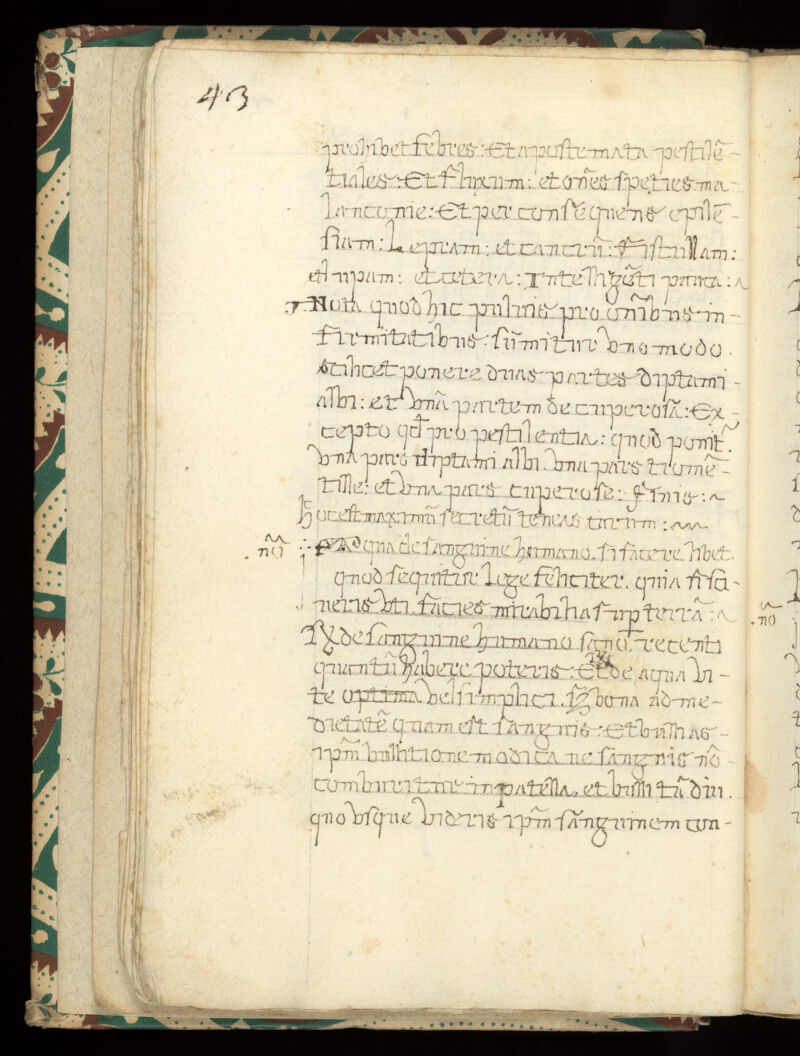 43
prohibet febres: Et apostemata pestilẽ-
tiales: Et fluxum: et oñes spẽties ma-
lanconie: Et per consẽquens epilẽ-
siam: Lepram: et cancrũ: Fistullam:
et cetera: Intelligẽti pauca:
Nota quod hic puluis pro om̃ibus in-
firmitatibus: sũmitur vno modo.
scilicet ponere duas partes diptami
albi: et vnã partem de ciperosã: Ex-
cepto qđ pro pestilentia: quod ponit̃
vna pars diptami albi. vna pars tromẽ-
tille: et vna pars ciperose: finis:
hoc est maximũ secretũ teneas
.nõ Aqua de sanguine humano. si facere libet.
quod sequitur lege feliciter. quia
vti. facies mirabilia sup terrã:
de sanguine humano sano. recenti
quantũ habere poteris: Et de aqua vi-
te optima vel simplici. bona ad me-
dietatẽ quam est sanguis: Et bullias
ipm̃ bullitione modica ne sanguis nõ
comburitur in patella. et bulliatã diu.
quo vsque videris ipm̃ sãnguinem
.nõ